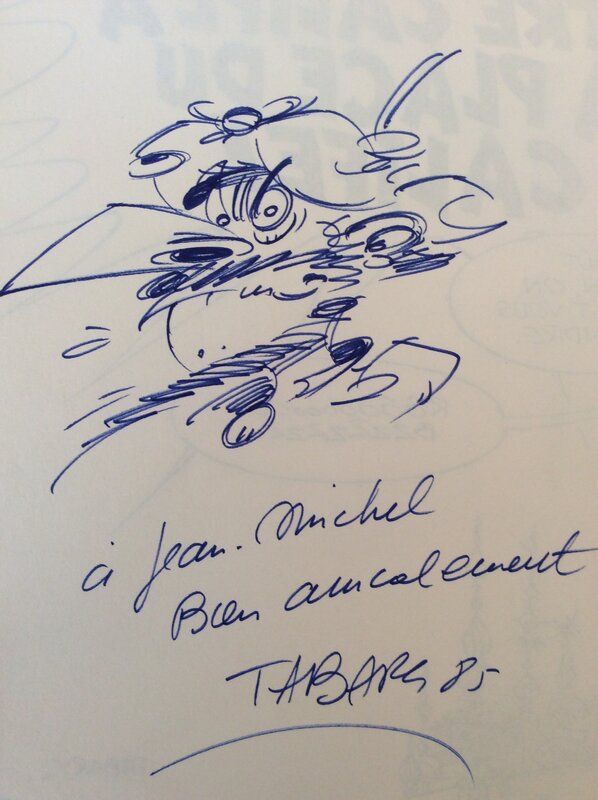 à Jean-Michel
Bien amicalement
TABARY 85